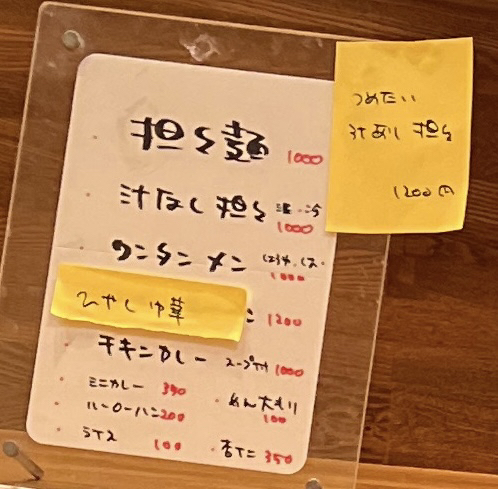 担々麺 1000
汁なし担々 温・冷
1000
ワンタンメン
1000
ひやし中華 1200
チキンカレー スープ付 1000
ミニカレー
ルーローハン 200
めん大もり
100
ライス 100
杏仁 350
つめたい
汁あり 担々
1200円